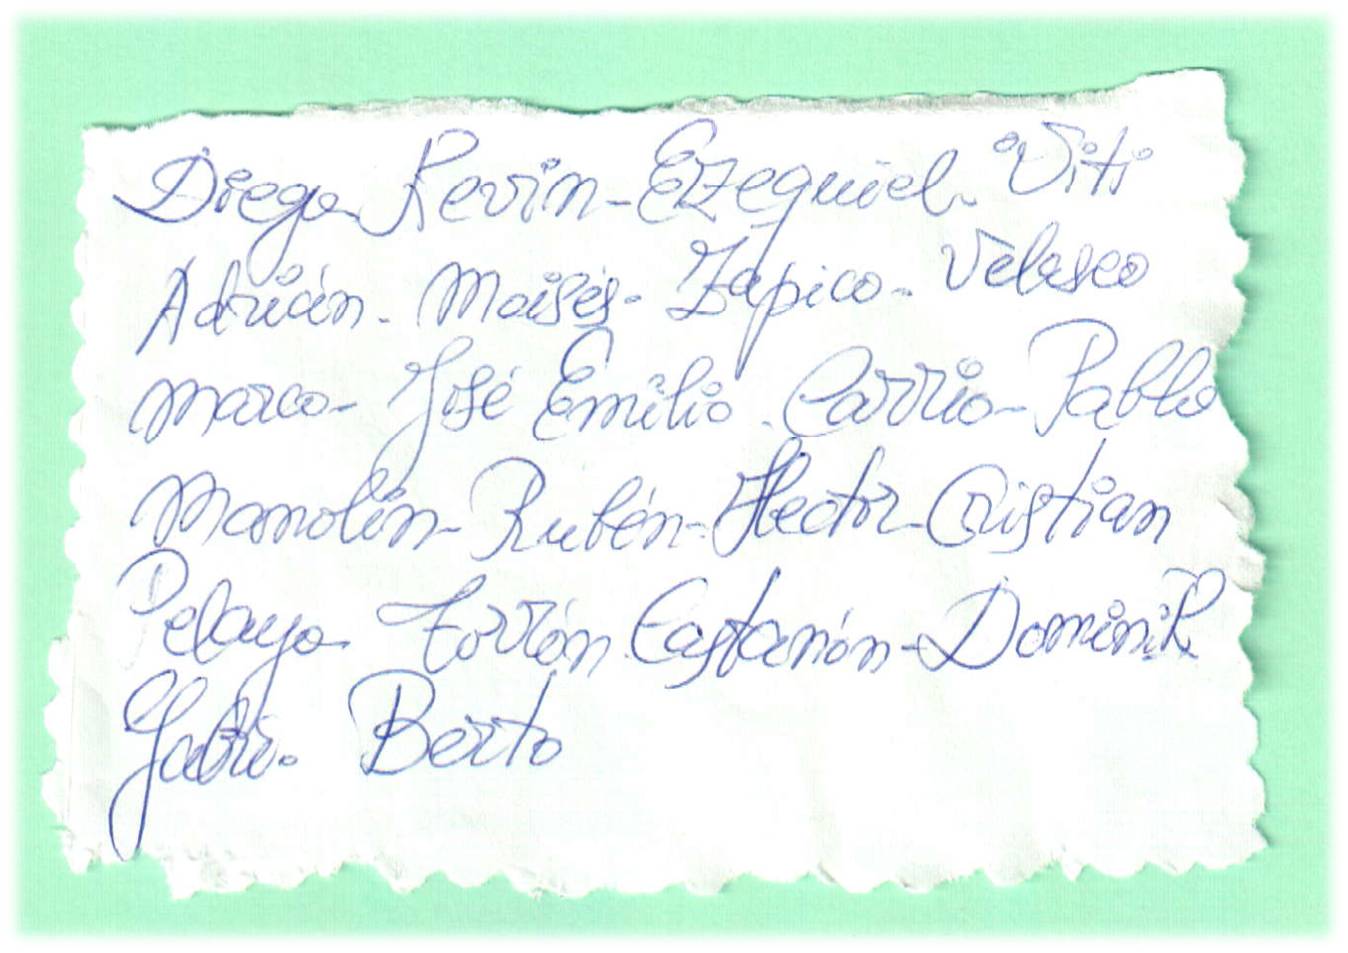 Diego - Kevin - Ezequiel - Viti
Adrián - Moisés - Zapico - Velasco
Marco - José Emilio - Carrio - Pablo
Manolín - Rubén - Hector - Cristian
Pelayo - Torrón - Castañón - Dominik
Gabri - Berto